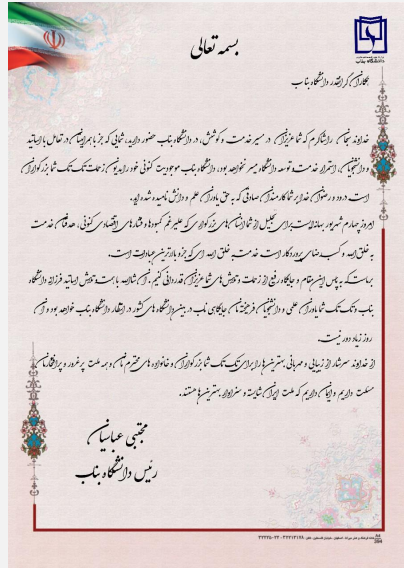 دانشگاه بناب
بسمه تعالی
همکاران گرانقدر دانشگاه بناب
خداوند سبحان را شاکرم که شما عزیزان در مسیر خدمت و کوشش، در دانشگاه بناب حضور دارید، شمایی که جز با همراهیتان در تعامل با اساتید
و دانشجویان، استمرار خدمت و توسعه دانشگاه میسر نخواهد بود، دانشگاه بناب موجودیت کنونی خود را مدیون زحمات تک تک شما بزرگواران
است درود و رضوان خدا بر شما کارمندان صادقی که به حق یاوران علم و دانش نامیده شده اید.
امروز چهارم شهریور بهانه ایست برای تجلیل از شما انسان های بزرگواری که علیرغم کمبودها و فشارهای اقتصادی کنونی، هدفتان خدمت
به خلق الله و کسب رضای پروردگار است خدمت به خلق الله ای که جزو بالاترین عبادات است.
بر ماست که به پاس این مقام و جایگاه رفیع از زحمات و تلاش های شما عزیزان قدردانی کنیم. ان شاالله با همت و تلاش اساتید فرزانه دانشگاه
بناب و تک تک شما یاوران علمی و دانشجویان فرهیخته مان جایگاهی ناب در بین دانشگاه های کشور در انتظار دانشگاه بناب خواهد بود و این
روز زیاد دور نیست.
از خداوند سرشار از زیبایی و مهربانی بهترین ها را برای تک تک شما بزرگواران و خانواده های محترم تان و همه ملت پرغرور و پرافتخارمان
مسئلت داریم و ایمان داریم که ملت ایران شایسته و سزاوار بهترین ها هستند.
مجتبی عباسیان
رئیس دانشگاه بناب